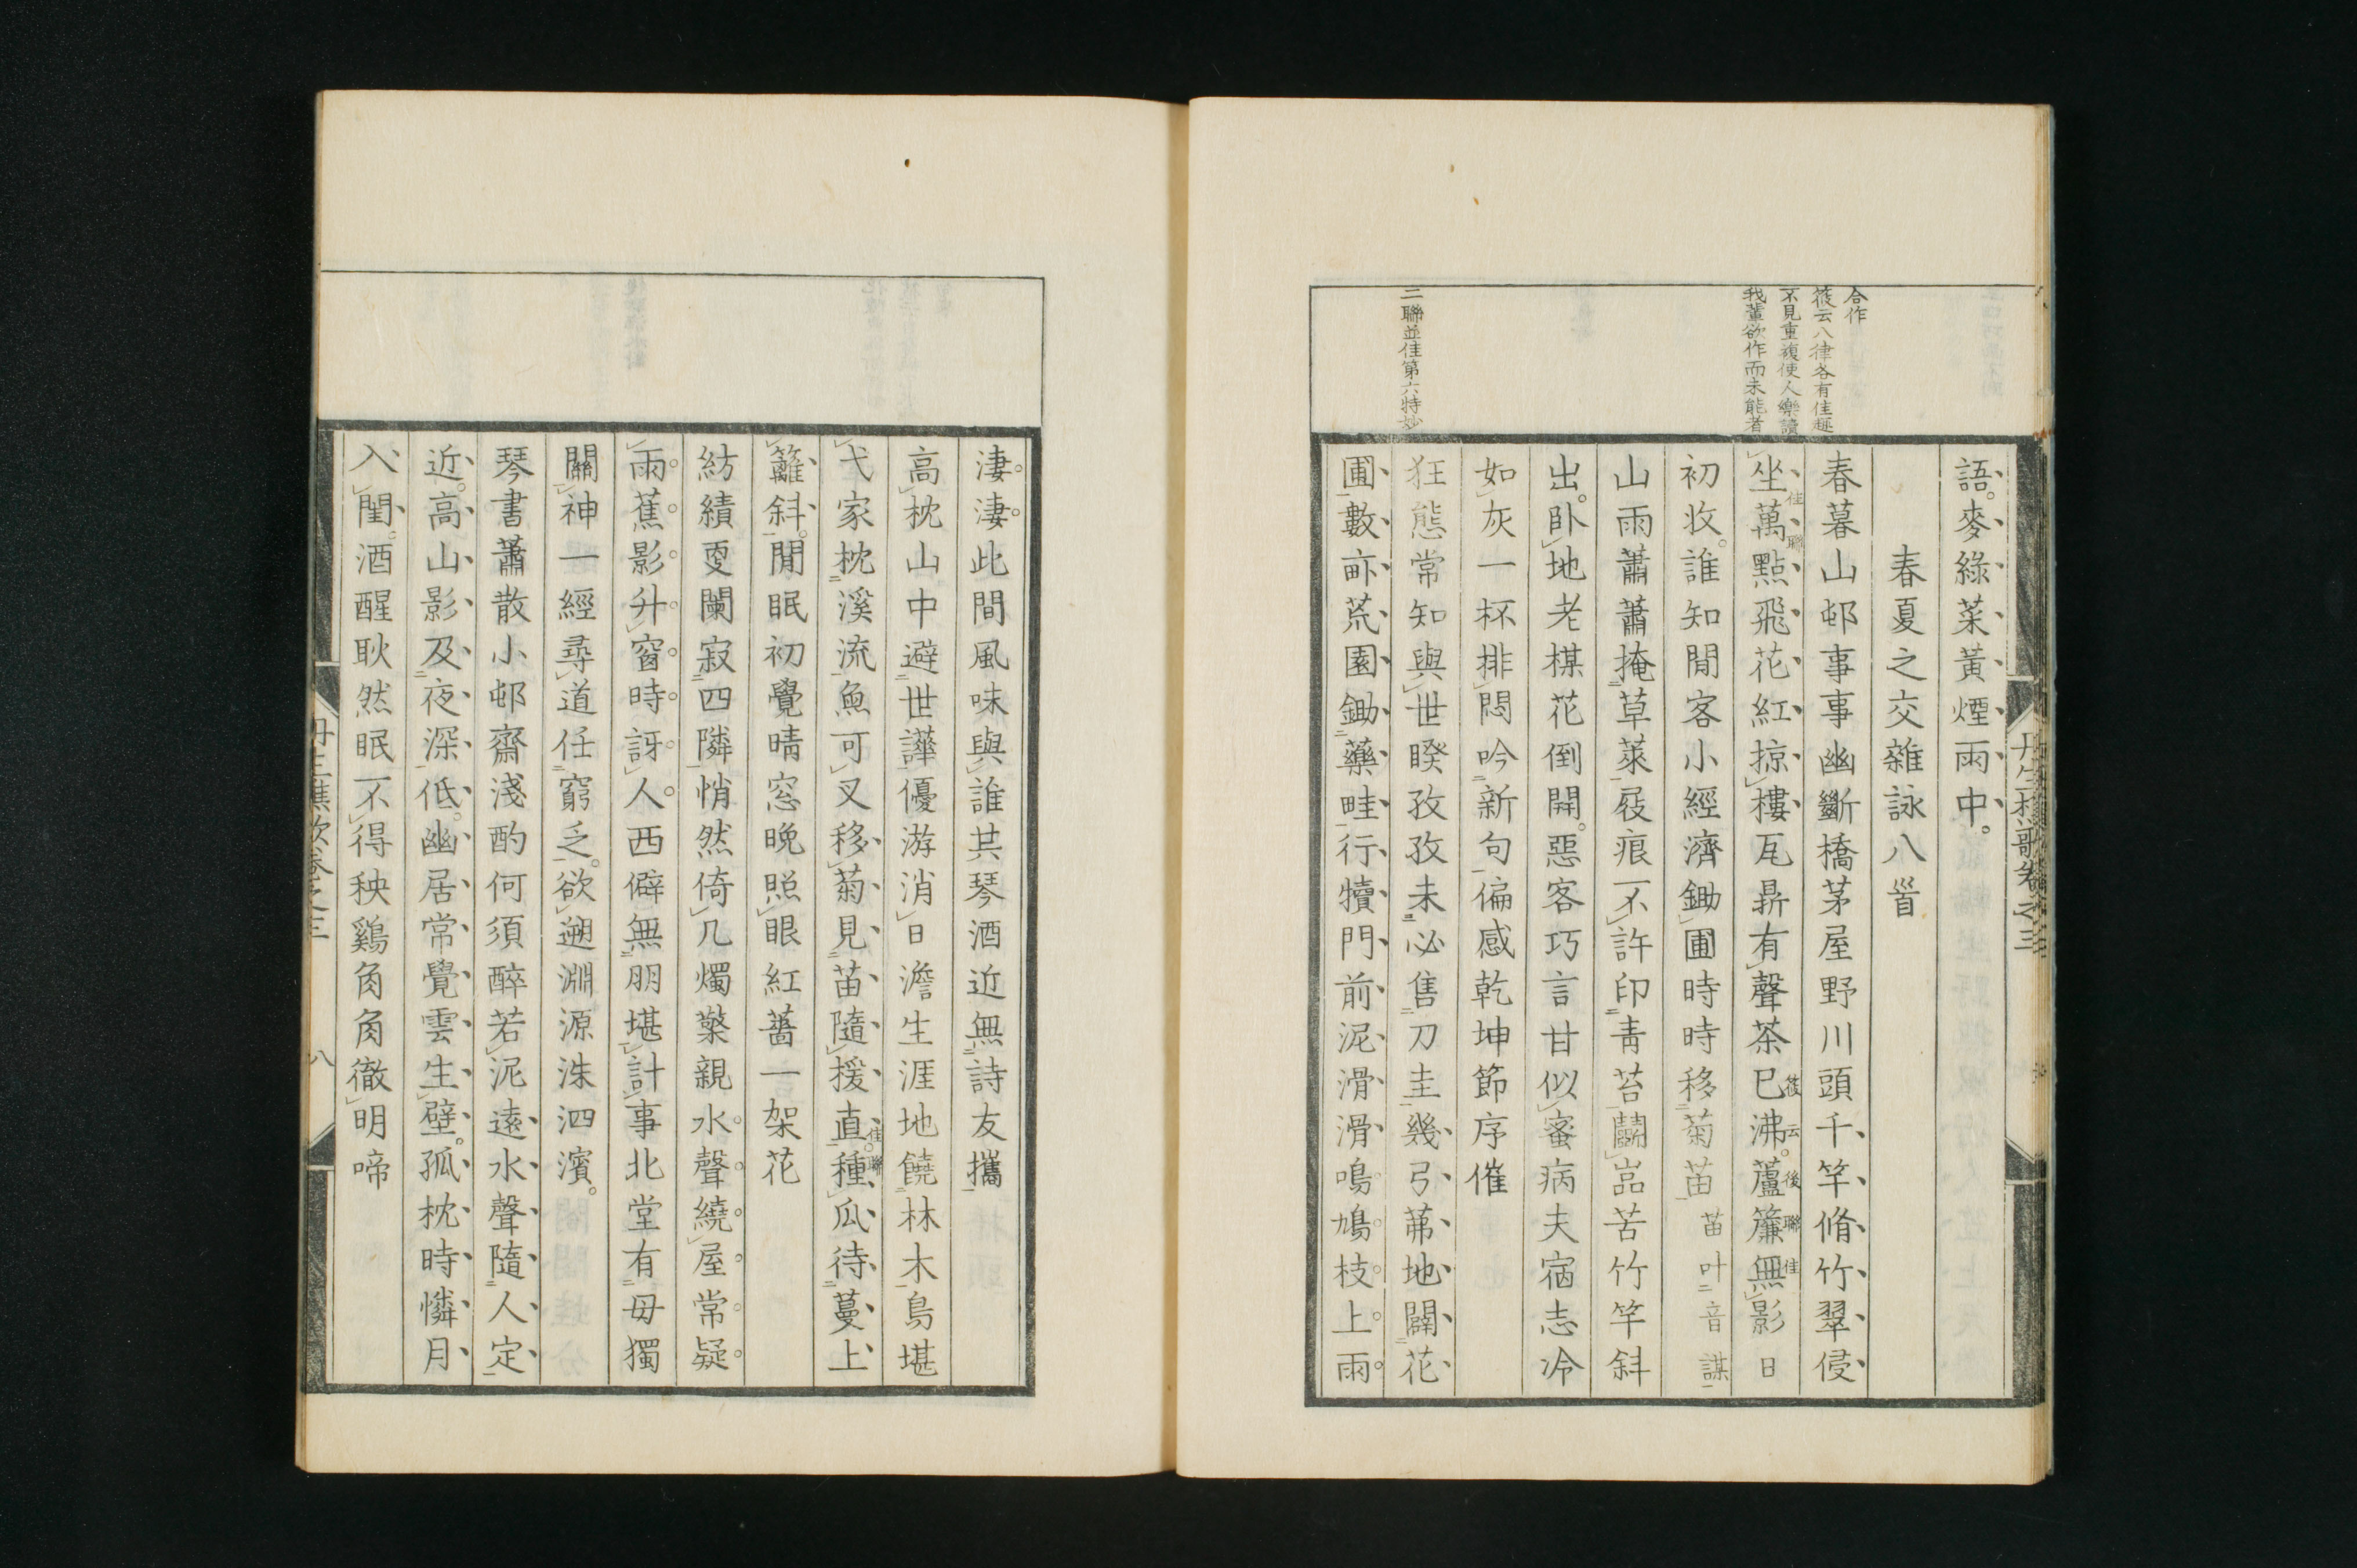 合作
筱云八律各有佳趣
不見重複使人樂讀
我輩欲作而未能者
二聯並佳第六特妙
語麥綠菜黃煙雨中
春夏之交雜詠八首
春暮山邨事事幽斷橋茅屋野川頭千竿脩竹翠侵
坐萬點飛花紅掠樓瓦鼎有聲茶已沸蘆簾無影日
佳聯
筱云後聯佳
初收誰知閒客小經濟鋤圃時時移菊苗苗叶音謀
山雨蕭蕭掩草萊屐痕不許印青苔鬭嵓苦竹竿斜
出臥地老棋花倒開惡客巧言甘似蜜病夫宿志冷
如灰一杯排悶吟新句偏感乾坤節序催
狂態常知與世睽孜孜未必售刀圭幾弓茀地闢花
圃數畝荒園鋤藥畦行犢門前泥滑滑鳴鳩枝上雨
丹生樵歌卷之三
淒淒此間風味與誰共琴酒近無詩友攜
高枕山中避世譁優游消日澹生涯地饒林木鳥堪
弋家枕溪流魚可叉移菊見苗隨援直種瓜待蔓上
佳聯
籬斜閒眠初覺晴窓晚照眼紅薔一架花
紡績更闌寂四隣悄然倚几燭檠親水聲繞屋常疑
雨蕉影升窗時訝人西僻無朋堪計事北堂有母獨
關神一經尋道任窮乏欲遡淵源洙泗濱
琴書蕭散小邨齋淺酌何須醉若泥遠水聲隨人定
近高山影及夜深低幽居常覺雲生壁孤枕時憐月
入閨酒醒耿然眠不得秧鷄角角徹明啼
丹生樵歌卷之三
八